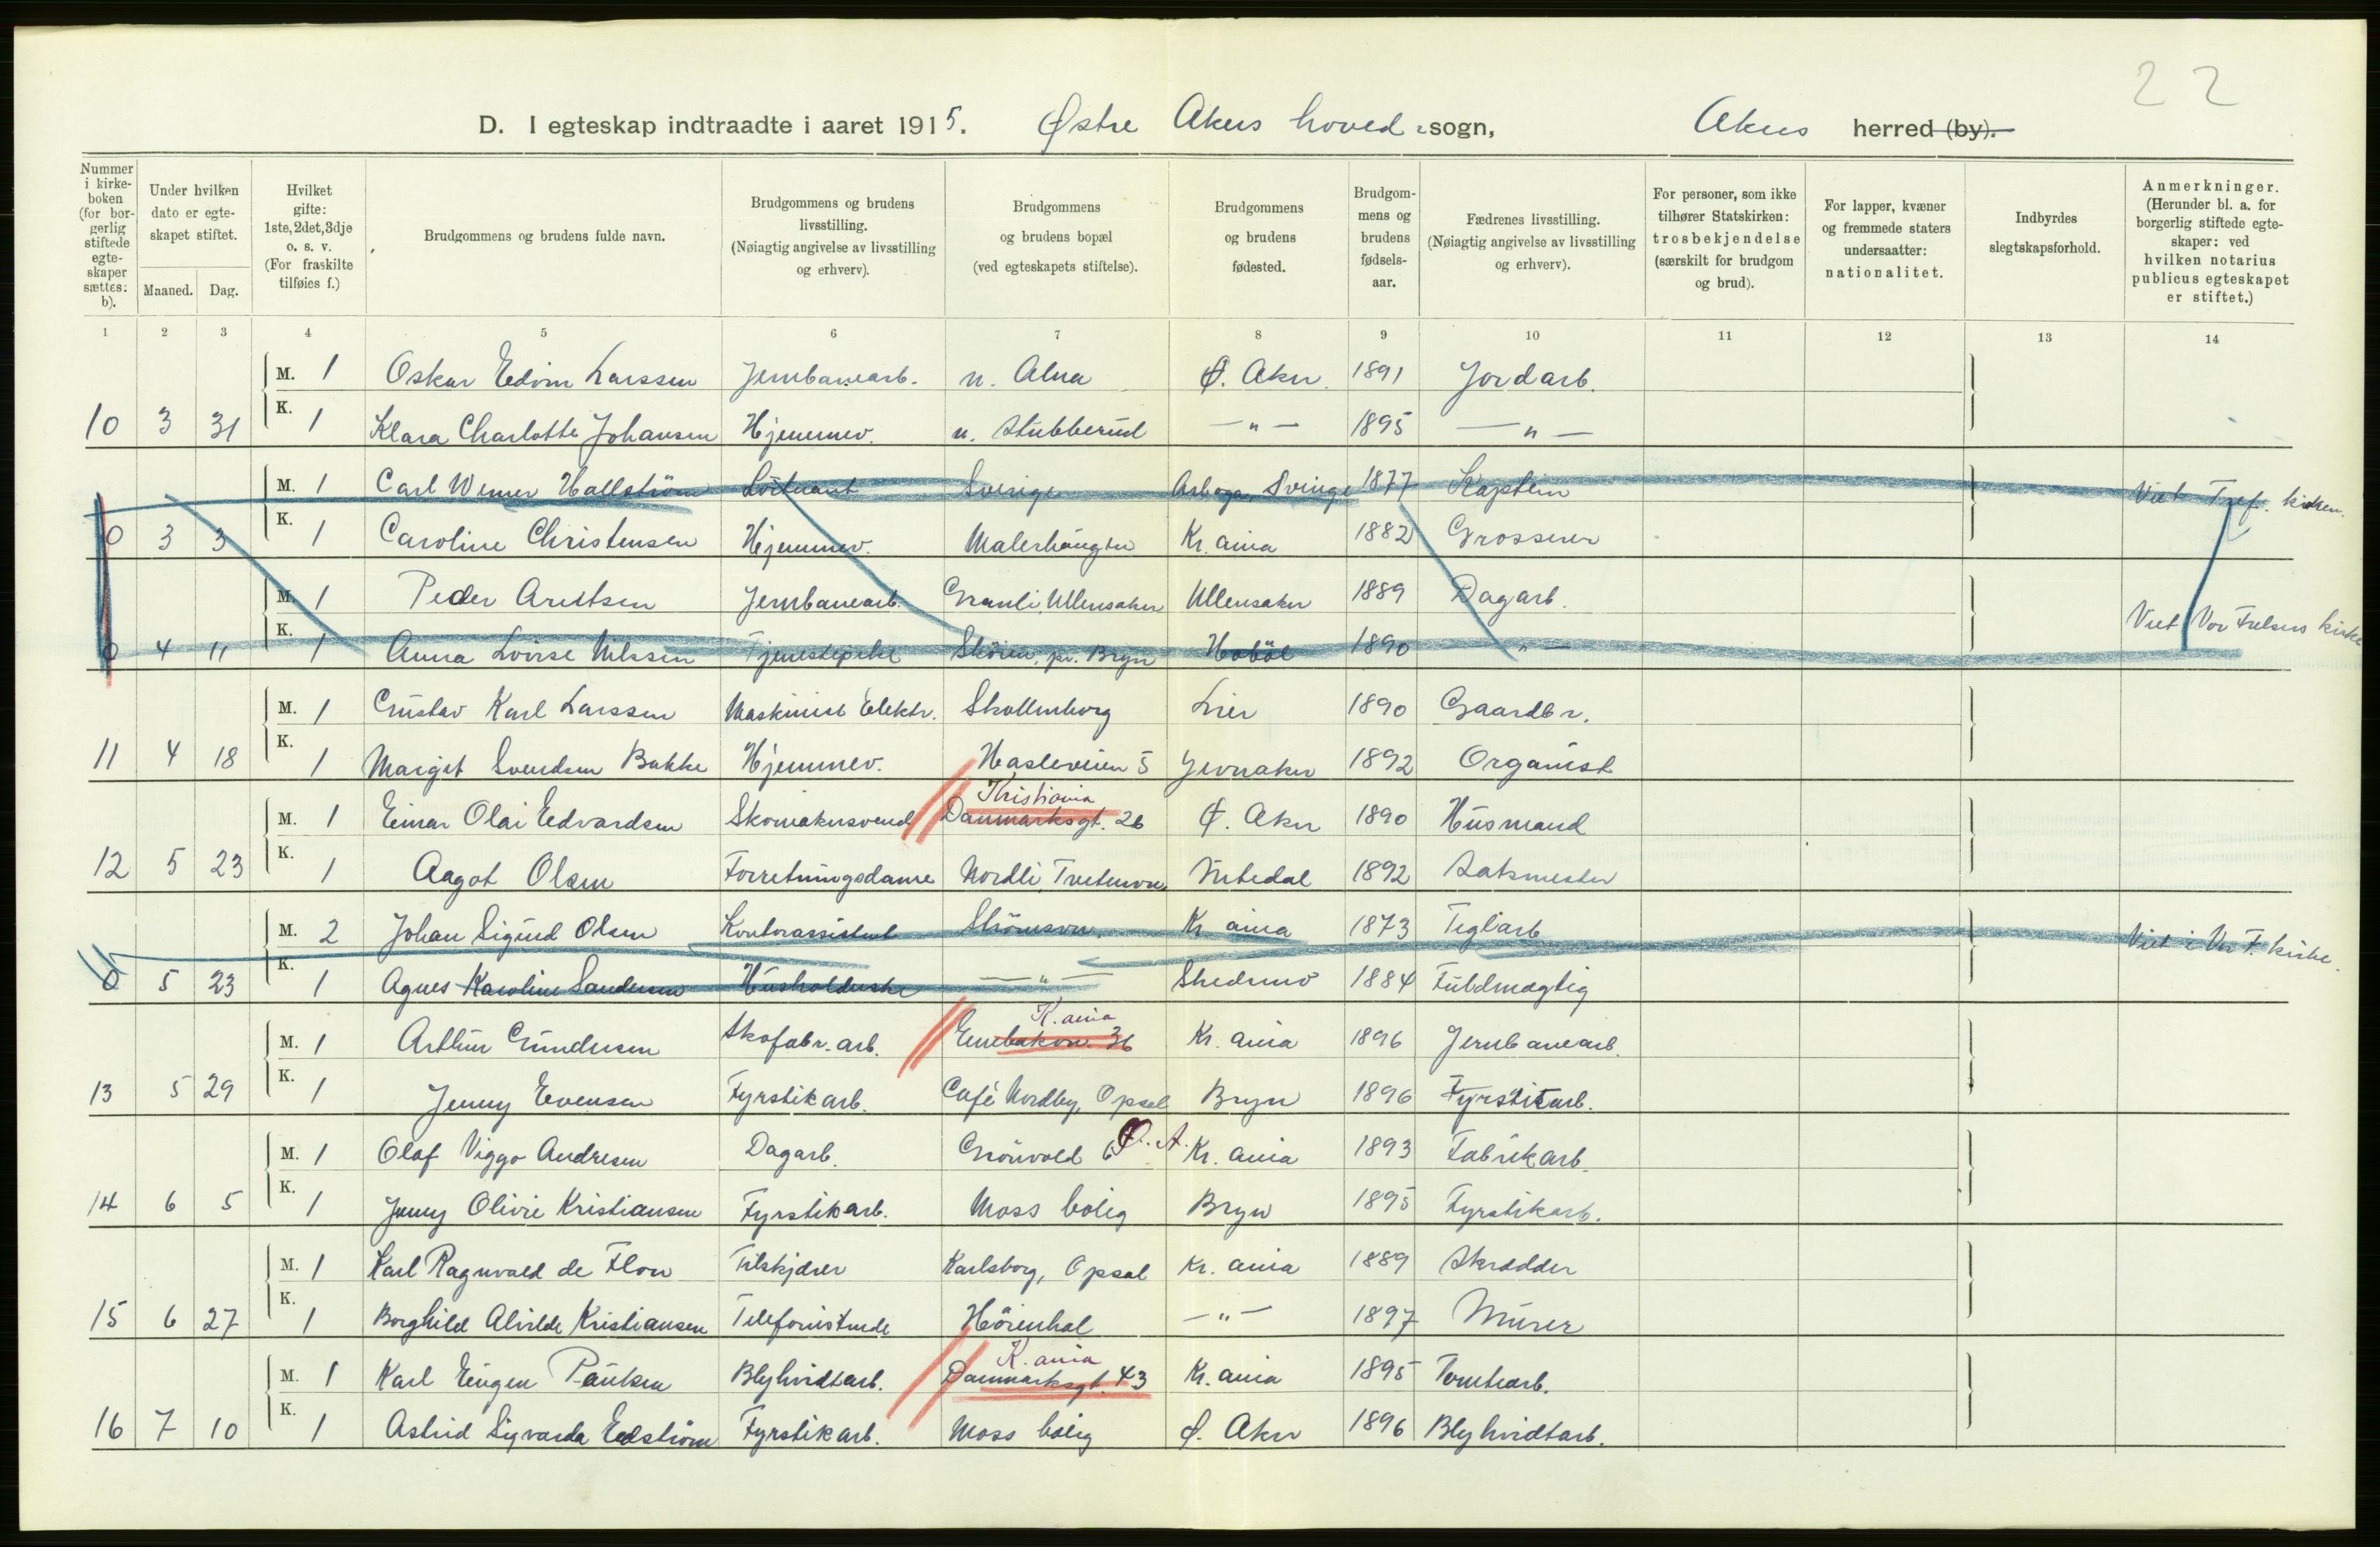 22
D. I egteskap indtraadte i aaret 1915. Østre Akers hoved sogn, Akers herred (by).
Nummer i kirkeboken (for borgerlig stiftede egteskaper sættes: b).
Under hvilken dato er egteskapet stiftet.
Maaned. Dag.
Hvilket gifte: 1ste, 2det, 3dje o. s. v. (For fraskilte tilføies f.)
Brudgommens og brudens fulde navn.
Brudgommens og brudens livsstilling. (Nøiagtig angivelse av livsstilling og erhverv).
Brudgommens og brudens bopæl (ved egteskapets stiftelse).
Brudgommens og brudens fødested.
Brudgommens og brudens fødselsaar.
Fædrenes livsstilling. (Nøiagtig angivelse av livsstilling og erhverv).
For personer, som ikke tilhører Statskirken: trosbekjendelse (særskilt for brudgom og brud).
For lapper, kvæner og fremmede staters undersaatter: nationalitet.
Indbyrdes slegtskapsforhold.
Anmerkninger. (Herunder bl. a. for borgerlig stiftede egteskaper: ved hvilken notarius publicus egteskapet er stiftet.)
1 2 3 4 5 6 7 8 9 10 11 12 13 14
M. 1 Oskar Edvin Larssen Jernbanearb. n. Alna Ø. Aker 1891 Jordarb.
10 3 31 K. 1 Klara Charlotte Johansen Hjemmev. n. Stubberud —"— 1895 —"—
M. 1 Carl Werner Hallström Löitnant Sverige Arboga, Sverige 1877 Kaptein Viet Tref. kirken.
0 3 3 K. 1 Caroline Christensen Hjemmev. Malerhaugen Kr.ania 1882 Grosserer
M. 1 Peder Arntsen Jernbanearb. Granli, Ullensaker Ullensaker 1889 Dagarb.
0 4 11 K. 1 Anna Lovise Nilssen Tjenestepike Sköien, pr. Bryn Hobøl 1890 —"— Viet Vor Frelsers kirke
M. 1 Gustav Karl Larssen Maskinist Elektr. Skollenborg Lier 1890 Gaardbr.
11 4 18 K. 1 Margit Svendsen Bakke Hjemmev. Hasleveien 5 Jevnaker 1892 Organist
Kristiania
M. 1 Einar Olai Edvardsen Skomakersvend Danmarksgt. 26 Ø. Aker 1890 Husmand
12 5 23 K. 1 Aagot Olsen Forretningsdame Nordli, Tvetenvn. Nitedal 1892 Laksmester
M. 2 Johan Sigurd Olsen Kontorassistent Strömsvn. Kr.ania 1873 Teglarb. Viet i Vor F. kirke.
0 5 23 K. 1 Agnes Karoline Sandersen Husholderske —"— Skedsmo 1884 Fuldmægtig
K.ania
M. 1 Arthur Gundersen Skofabr.arb. Enebakvn. 36 Kr.ania 1896 Jernbanearb.
13 5 29 K. 1 Jenny Evensen Fyrstikarb. Café Nordby, Opsal Bryn 1896 Fyrstikarb.
M. 1 Olaf Viggo Andresen Dagarb. Grönvold 6 Ø. A. Kr.ania 1893 Fabrikarb.
14 6 5 K. 1 Jenny Olivie Kristiansen Fyrstikarb. Moss bolig Bryn 1895 Fyrstikarb.
M. 1 Karl Ragnvald de Flon Tilskjærer Karlsborg, Opsal Kr.ania 1889 Skrædder
15 6 27 K. 1 Borghild Alvilde Kristiansen Telefonistinde Höienhal —"— 1897 Murer
K.ania
M. 1 Karl Eugen Paulsen Blyhvidtarb. Danmarksgt. 43 Kr.ania 1895 Tomtearb.
16 7 10 K. 1 Astrid Sigvarda Edström Fyrstikarb. Moss bolig Ø. Aker 1896 Blyhvidtarb.